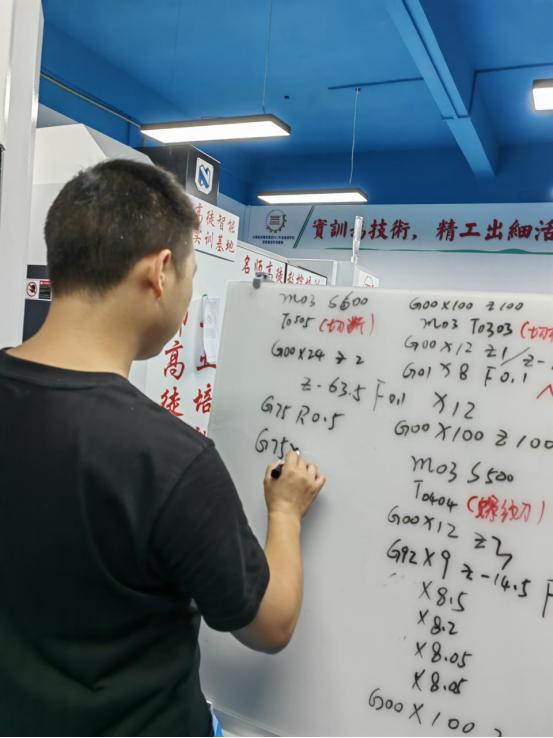 實訓為技術，精工出細活
高徒智能
實訓基地
名师高徒
高
徒
培
M03 S600
T0505 (切断)
G00X24 Z2
Z-63.5 F0.1
G75 R0.5
G75X
G00X100 Z100
M03 T0303 (切
G00X12 Z1/Z-
G01X8 F0.1
X12
G00X100 Z100
M03 S500
T0404 (螺纹刀)
G00X12 Z3
G92X9 Z-14.5 F
X8.5
X8.2
X8.05
X8.05
G00X100